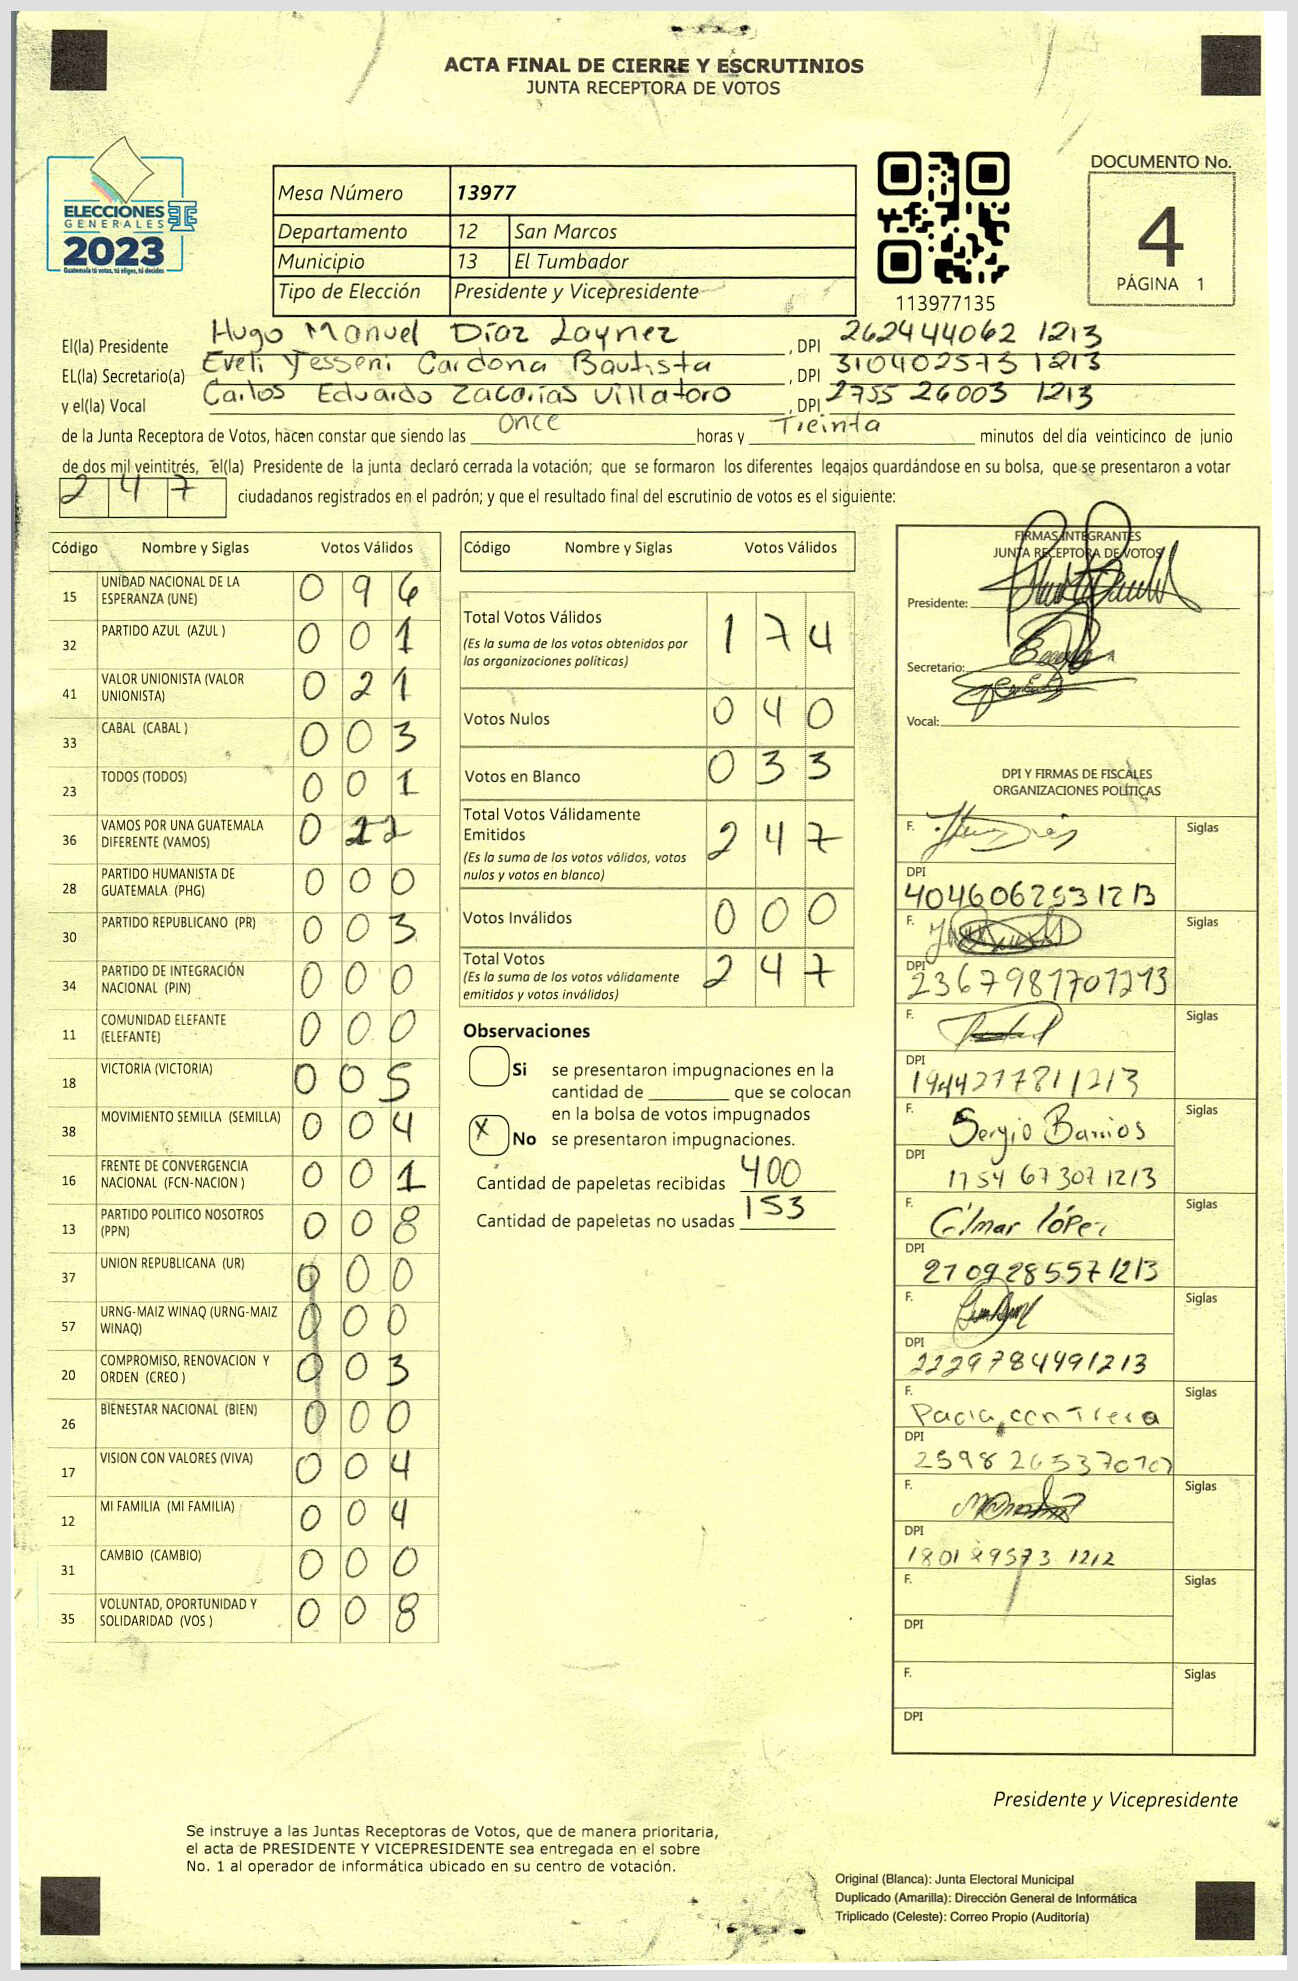 ACTA FINAL DE CIERRE Y ESCRUTINIOS
JUNTA RECEPTORA DE VOTOS
ELECCIONES
GENERALES
2023
Guatemala tú votas, tú eliges, tú decides
Mesa Número 13977
Departamento 12 San Marcos
Municipio 13 El Tumbador
Tipo de Elección Presidente y Vicepresidente
113977135
DOCUMENTO No.
4
PÁGINA 1
El(la) Presidente Hugo Manuel Díaz Laynez , DPI 262444062 1213
EL(la) Secretario(a) Eveli Yesseni Cardona Bautista , DPI 310402573 1213
y el(la) Vocal Carlos Eduardo Zacarías Villatoro , DPI 2755 26003 1213
de la Junta Receptora de Votos, hacen constar que siendo las once horas y Treinta minutos del día veinticinco de junio
de dos mil veintitrés, el(la) Presidente de la junta declaró cerrada la votación; que se formaron los diferentes legajos guardándose en su bolsa, que se presentaron a votar
247 ciudadanos registrados en el padrón; y que el resultado final del escrutinio de votos es el siguiente:
Código Nombre y Siglas Votos Válidos
15 UNIDAD NACIONAL DE LA ESPERANZA (UNE) 0 9 6
32 PARTIDO AZUL (AZUL ) 0 0 1
41 VALOR UNIONISTA (VALOR UNIONISTA) 0 2 1
33 CABAL (CABAL ) 0 0 3
23 TODOS (TODOS) 0 0 1
36 VAMOS POR UNA GUATEMALA DIFERENTE (VAMOS) 0 2 2
28 PARTIDO HUMANISTA DE GUATEMALA (PHG) 0 0 0
30 PARTIDO REPUBLICANO (PR) 0 0 3
34 PARTIDO DE INTEGRACIÓN NACIONAL (PIN) 0 0 0
11 COMUNIDAD ELEFANTE (ELEFANTE) 0 0 0
18 VICTORIA (VICTORIA) 0 0 5
38 MOVIMIENTO SEMILLA (SEMILLA) 0 0 4
16 FRENTE DE CONVERGENCIA NACIONAL (FCN-NACION ) 0 0 1
13 PARTIDO POLITICO NOSOTROS (PPN) 0 0 8
37 UNION REPUBLICANA (UR) 0 0 0
57 URNG-MAIZ WINAQ (URNG-MAIZ WINAQ) 0 0 0
20 COMPROMISO, RENOVACION Y ORDEN (CREO ) 0 0 3
26 BIENESTAR NACIONAL (BIEN) 0 0 0
17 VISION CON VALORES (VIVA) 0 0 4
12 MI FAMILIA (MI FAMILIA) 0 0 4
31 CAMBIO (CAMBIO) 0 0 0
35 VOLUNTAD, OPORTUNIDAD Y SOLIDARIDAD (VOS ) 0 0 8
Código Nombre y Siglas Votos Válidos
Total Votos Válidos 1 7 4
(Es la suma de los votos obtenidos por
las organizaciones políticas)
Votos Nulos 0 4 0
Votos en Blanco 0 3 3
Total Votos Válidamente
Emitidos 2 4 7
(Es la suma de los votos válidos, votos
nulos y votos en blanco)
Votos Inválidos 0 0 0
Total Votos 2 4 7
(Es la suma de los votos válidamente
emitidos y votos inválidos)
Observaciones
Si se presentaron impugnaciones en la
cantidad de ________ que se colocan
en la bolsa de votos impugnados
X No se presentaron impugnaciones.
Cantidad de papeletas recibidas 400
Cantidad de papeletas no usadas 153
FIRMAS INTEGRANTES
JUNTA RECEPTORA DE VOTOS
Presidente:
Secretario:
Vocal:
DPI Y FIRMAS DE FISCALES
ORGANIZACIONES POLÍTICAS
F. Siglas
DPI
4046062531213
F. Siglas
DPI
2367981701213
F. Siglas
DPI
1944277811213
F. Sergio Barrios Siglas
DPI
1754 67307 1213
F. Gilmar lópez Siglas
DPI
2709285571213
F. Siglas
DPI
2229784491213
F. Siglas
DPI
F. Siglas
DPI
F. Siglas
DPI
F. Siglas
DPI
Presidente y Vicepresidente
Se instruye a las Juntas Receptoras de Votos, que de manera prioritaria,
el acta de PRESIDENTE Y VICEPRESIDENTE sea entregada en el sobre
No. 1 al operador de informática ubicado en su centro de votación.
Original (Blanca): Junta Electoral Municipal
Duplicado (Amarilla): Dirección General de Informática
Triplicado (Celeste): Correo Propio (Auditoría)